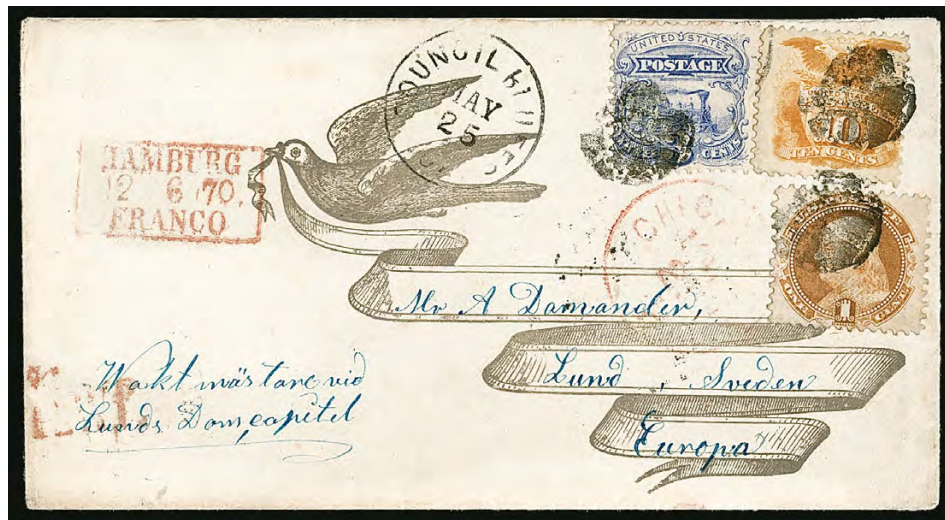 COUNCIL BLUFFS
MAY
25
UNITED STATES
POSTAGE
CENTS
10
TEN CENTS
HAMBURG
12 6 70.
FRANCO
CHICA
ONE
1
ONE
Mr A Damander,
Lund, Sveden
Europa
Waktmästare vid
Lunds Domcapitel